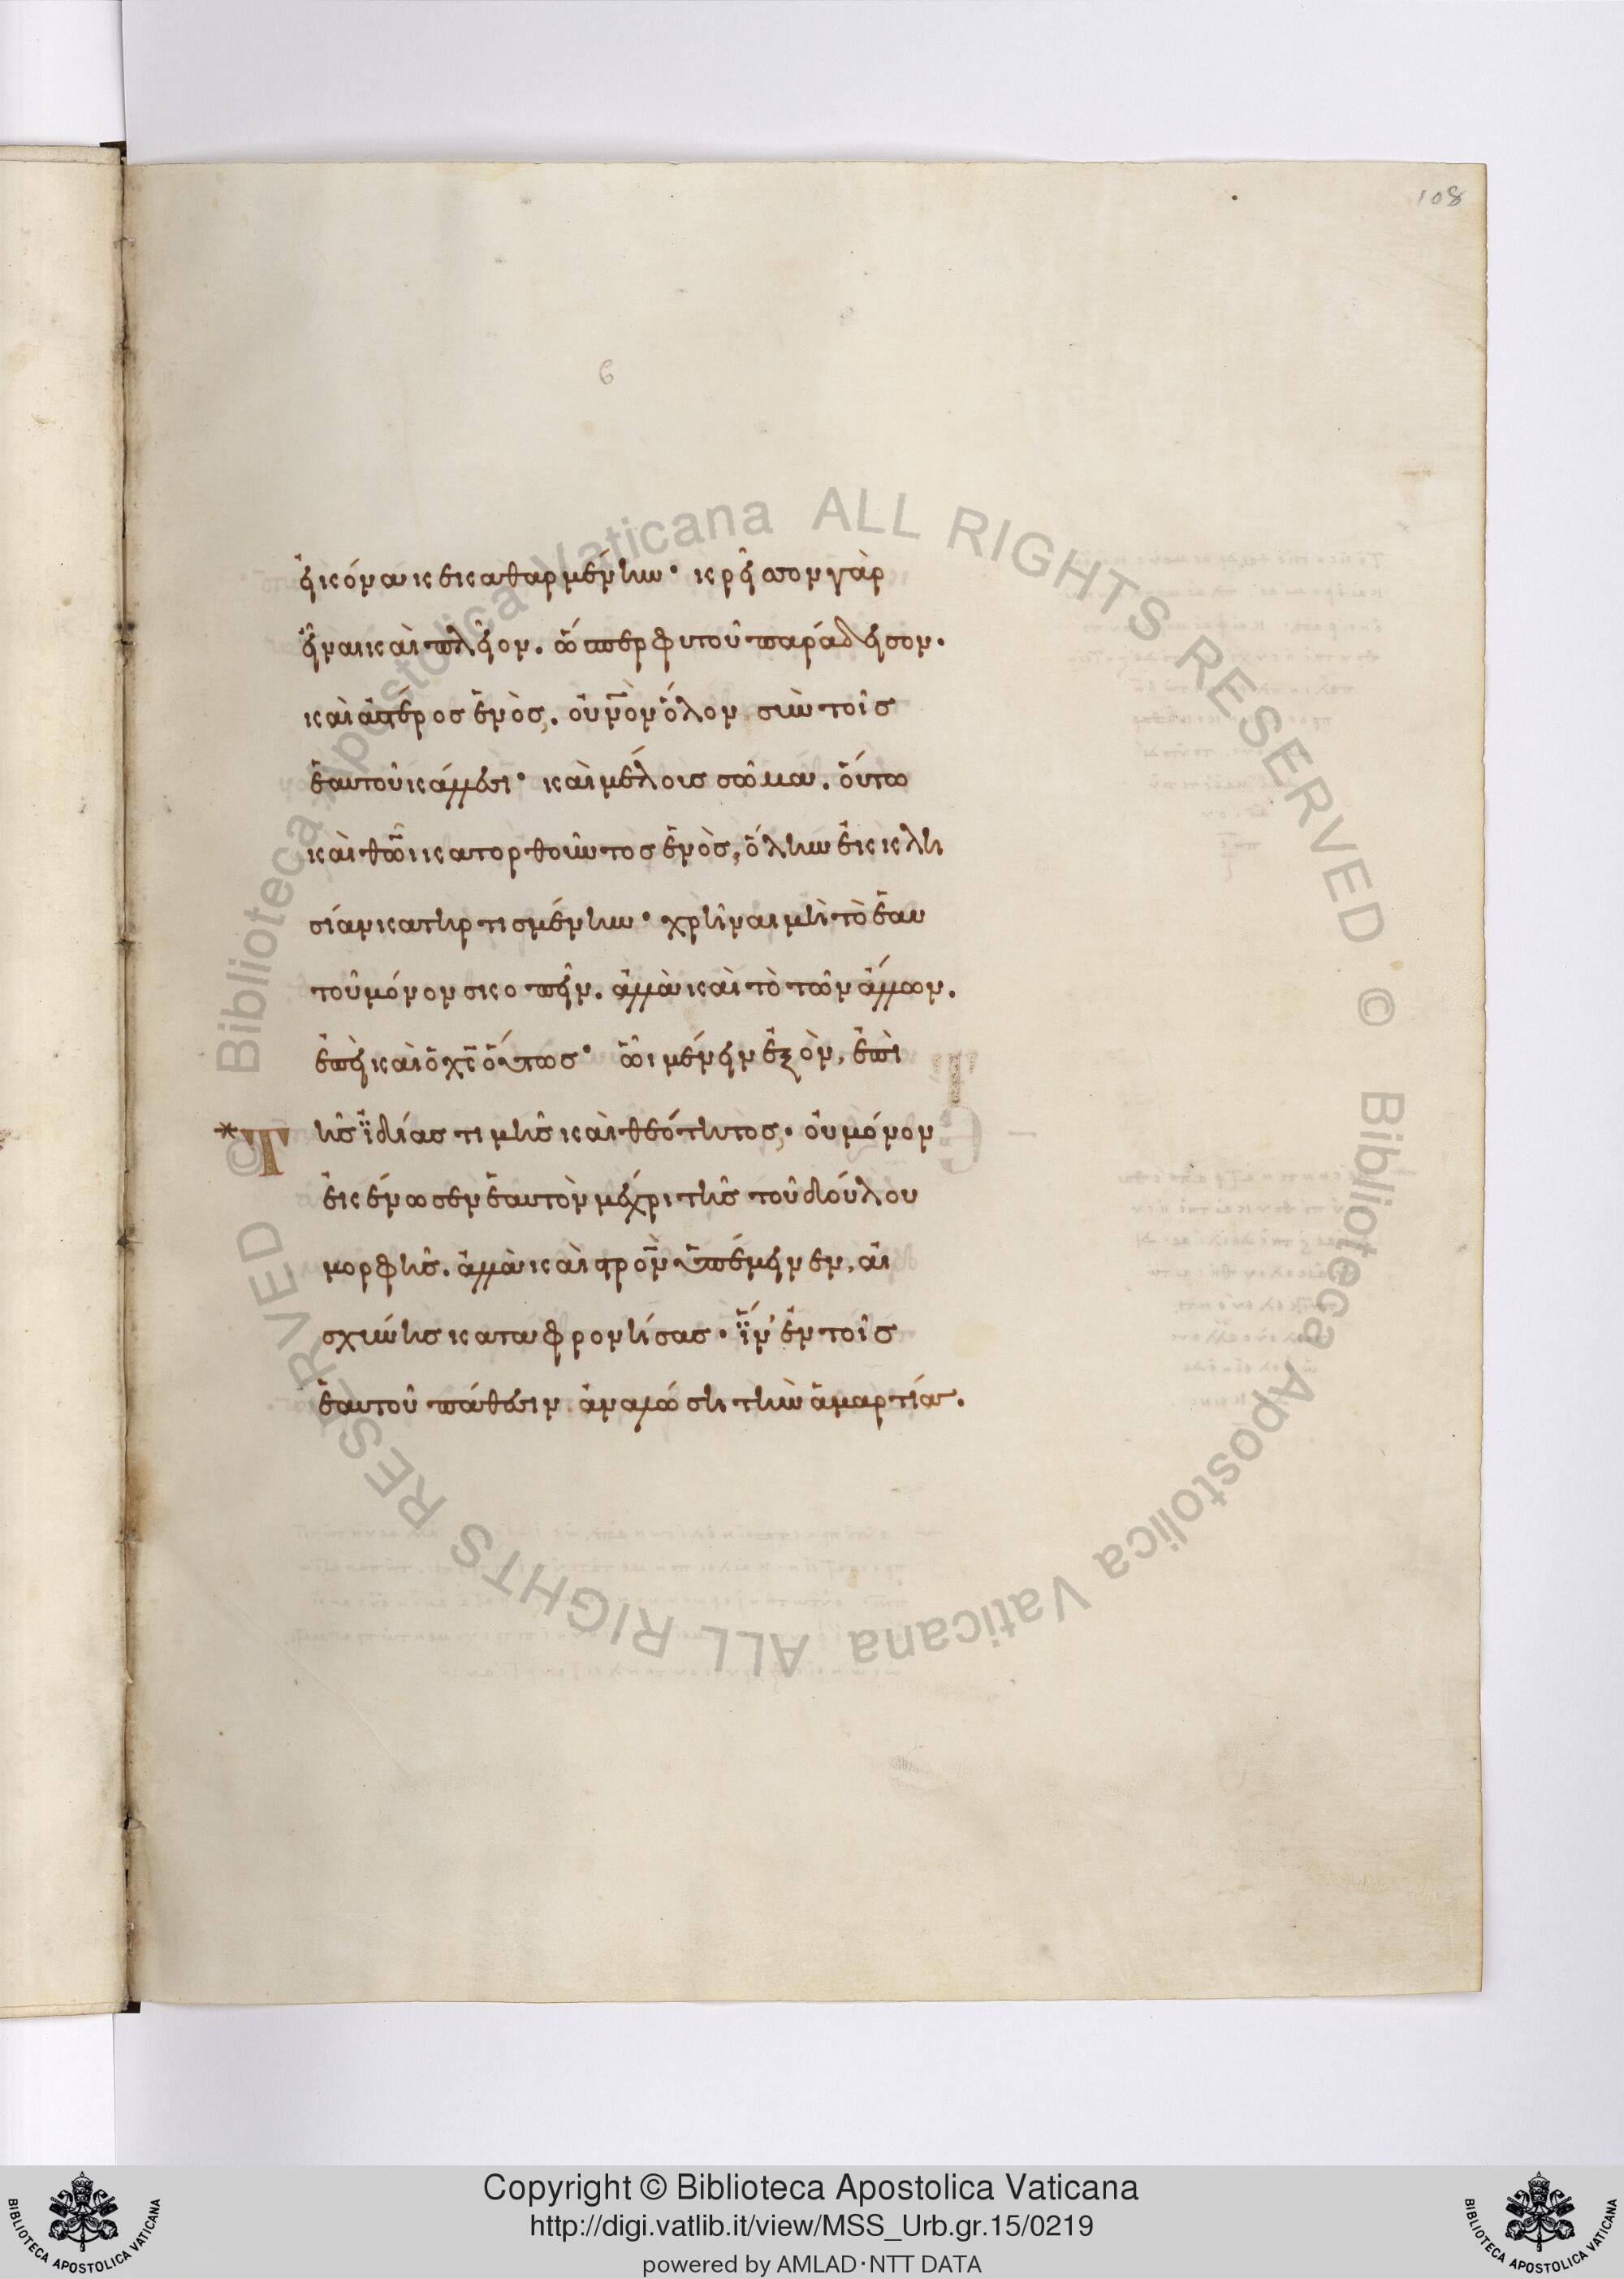 108
6
εἰκόνα κεκαθαρμένην· κρεῖσσον γὰρ
εἶναι καὶ πλεῖον. ὥσπερ φυτοῦ παράδεισον.
καὶ ἀστέρος ἑνὸς, οὐνὸν ὅλον σὺν τοῖς
ἑαυτοῦ κάλλεσι· καὶ μέλους σῶμα. οὕτω
καὶ θῶι κατορθοῦντος ἑνὸς, ὅλην ἐκκλη
σίαν κατηρτισμένην· χρῆναι μὴ τὸ ἑαυ
τοῦ μόνον σκοπεῖν. ἀλλὰ καὶ τὸ τῶν ἄλλων.
ἐπεὶ καὶ ὁ χς οὕτως· ὧι μένειν ἐξὸν, ἐπὶ
*Τῆς ἰδίας τιμῆς καὶ θεότητος· οὐ μόνον
ἐκένωσεν ἑαυτὸν μέχρι τῆς τοῦ δούλου
μορφῆς. ἀλλὰ καὶ στρον ὑπέμεινεν, αἰ
σχύνης καταφρονήσας· ἵν' ἐν τοῖς
ἑαυτοῦ πάθεσιν ἀναλώσῃ τὴν ἁμαρτίαν.
© Biblioteca Apostolica Vaticana ALL RIGHTS RESERVED © Biblioteca Apostolica Vaticana ALL RIGHTS RESERVED
BIBLIOTECA APOSTOLICA VATICANA
Copyright © Biblioteca Apostolica Vaticana
http://digi.vatlib.it/view/MSS_Urb.gr.15/0219
powered by AMLAD·NTT DATA
BIBLIOTECA APOSTOLICA VATICANA